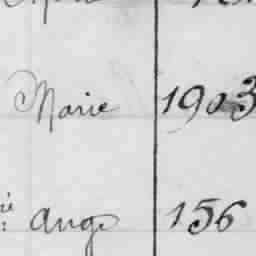 Marie 1903
Ang 156